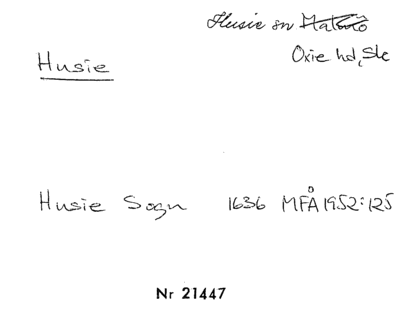 Husie sn Malmö
Oxie hd, Sk
Husie
Husie Sogn 1636 MFÅ 1952:125
Nr 21447